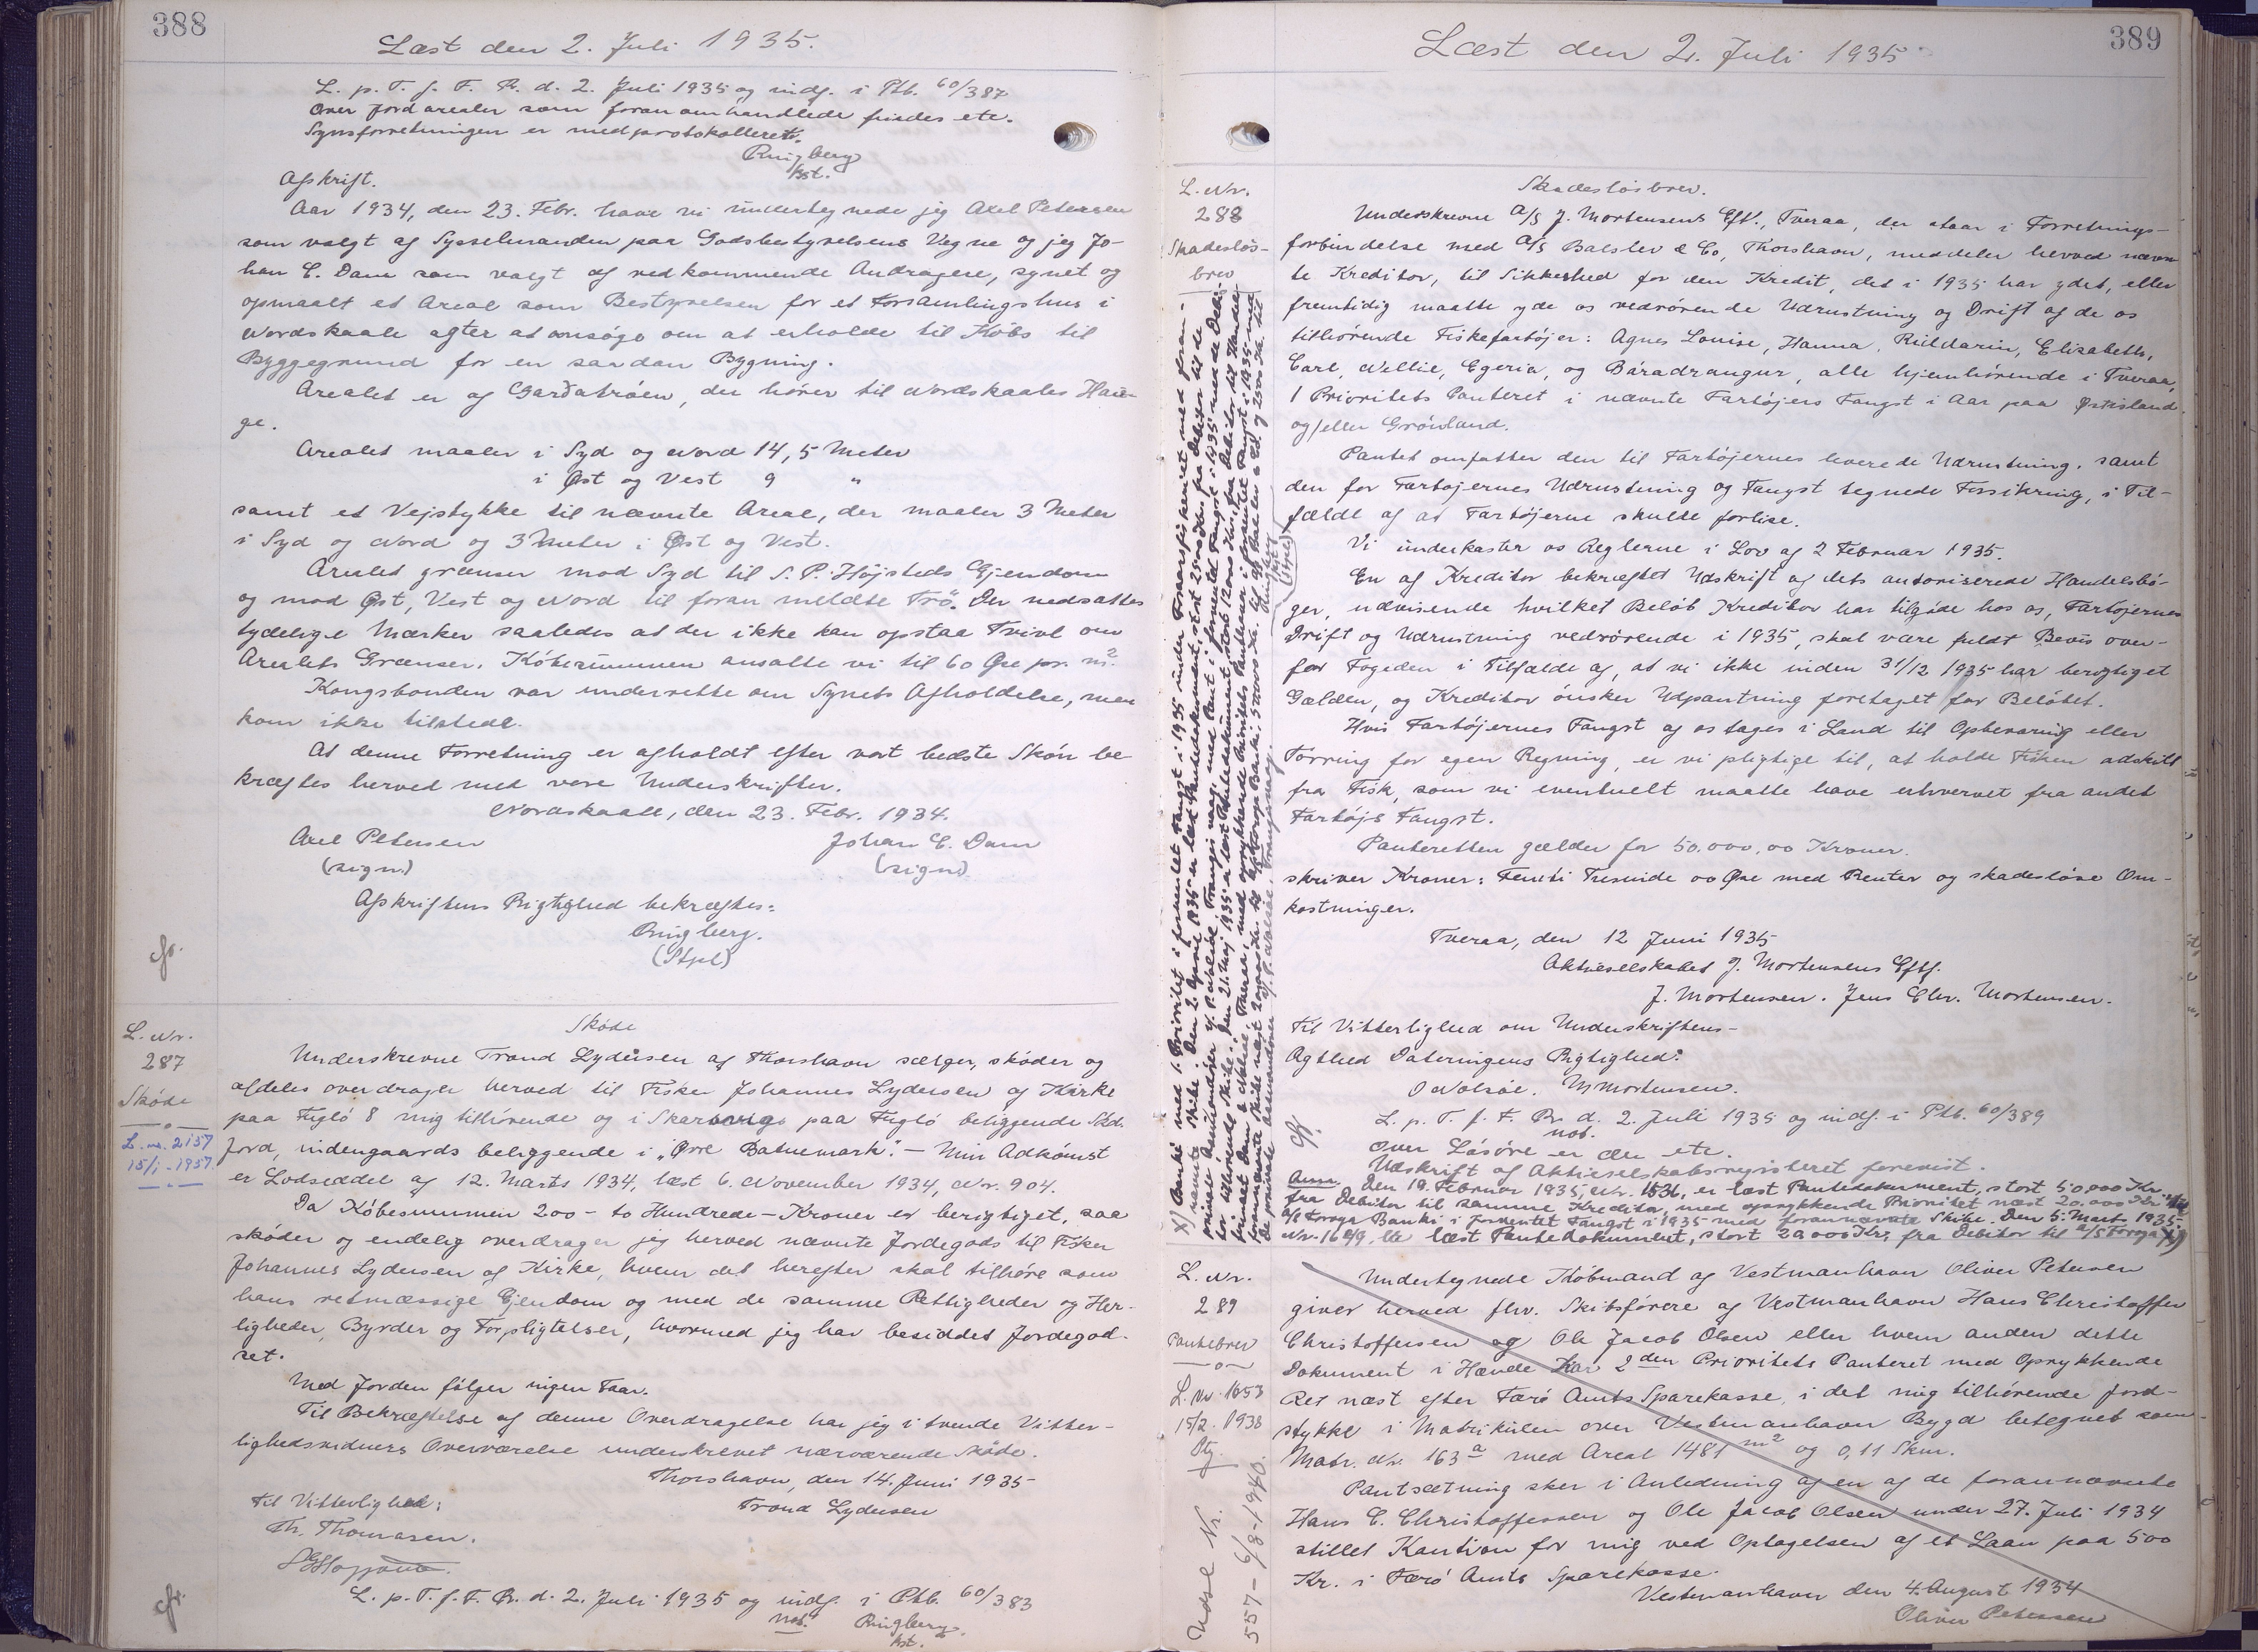 388
Læst den 2. Juli 1935.
L. p. T. f. F. R. d. 2. Juli 1935 og indf. i Ptb. 60/387
over Jordarealer som foranomhandlede findes etc.
Synsforretningen er medprotokolleret.
Ringberg
kst.
Afskrift.
Aar 1934, den 23. Febr. have vi undertegnede jeg Axel Petersen
som valgt af Sysselmanden paa Godsbestyrelsens Vegne og jeg Jo-
han C. Dam som valgt af vedkommende Andragere, synet og
opmaalt et Areal som Bestyrelsen for et Forsamlingshus i
Nordskaale agter at ansøge om at erholde til Købs til
Byggegrund for en saadan Bygning.
Arealet er af Garðatrøen, der hører til Nordskaales Hau-
ge.
Arealet maaler i Syd og Nord 14,5 Meter
i Øst og Vest 9 "
samt et Vejstykke til nævnte Areal, der maaler 3 Meter
i Syd og Nord og 3 Meter i Øst og Vest.
Arealet grænser mod Syd til S. P. Højsteds Ejendom
og mod Øst, Vest og Nord til foran meldte Trø. Der nedsattes
tydelige Mærker saaledes at der ikke kan opstaa Tvivl om
Arealets Grænser. Købesummen ansatte vi til 60 Øre pr. m².
Kongsbonden var underrette om Synets Afholdelse, men
kom ikke tilstede.
At denne Forretning er afholdt efter vort bedste Skøn be-
kræftes herved med vore Underskrifter.
Nordskaale, den 23. Febr. 1934.
Axel Petersen Johan C. Dam
(sign.) (sign)
Afskriftens Rigtighed bekræftes:
Ringberg.
(Stpl)
L. Nr.
287
Skøde
L. nr. 2157
15/1-1957
Skøde
Underskrevne Trond Lydersen af Thorshavn sælger, skøder og
afdeles overdrager herved til Fisker Johannes Lydersen af Kirke
paa Fuglø 8 mig tilhørende og i paa Fuglø beliggende Skd.
Jord, indengaards beliggende i "Øvre Batnemark". – Min Adkomst
er Lodseddel af 12. Marts 1934, læst 6. November 1934, Nr. 904.
Da Købesummen 200 – to Hundrede – Kroner er berigtiget, saa
skøder og endelig overdrager jeg herved nævnte Jordegods til Fisker
Johannes Lydersen af Kirke, hvem det herefter skal tilhøre som
hans retmæssige Ejendom og med de samme Rettigheder og Her-
ligheder, Byrder og Forpligtelser, hvormed jeg har besiddet Jordegod-
set.
Med Jorden følger ingen Faar.
Til Bekræftelse af denne Overdragelse har jeg i tvende Vitter-
lighedsvidners Overværelse underskrevet nærværende Skøde.
Thorshavn, den 14. Juni 1935
Trond Lydersen
Til Vitterlighed:
Th. Thomasen.
L. p. T. f. F. R. d. 2. Juli 1935 og indf. i Ptb. 60/383
not. Ringberg.
kst.
389
Læst den 2. Juli 1935
L. Nr.
288
Skadesløs-
brev
Skadesløsbrev.
Underskrevne A/S J. Mortensens Eftf., Tveraa, der staar i Forretnings-
forbindelse med A/S Balslev & Co, Thorshavn, meddeler herved nævn-
te Kreditor, til Sikkerhed for den Kredit, det i 1935 har ydet, eller
fremtidig maatte yde os vedrørende Udrustning og Drift af de os
tilhørende Fiskefartøjer: Agnes Louise, Hanna, Ruldarin, Elisabeth,
Carl, Nellie, Egeria, og Báradrangur, alle hjemhørende i Tveraa,
1 Prioritets Panteret i nævnte Fartøjers Fangst i Aar paa Østisland
og/eller Grønland.
Pantet omfatter den til Fartøjernes leverede Udrustning, samt
den for Fartøjernes Udrustning og Fangst tegnede Forsikring, i Til-
fælde af at Fartøjerne skulde forlise.
Vi underkaster os Reglerne i Lov af 2 Februar 1935.
En af Kreditor bekræftet Udskrift af dets autoriserede Handelsbø-
ger, udvisende hvilket Beløb Kreditor har tilgode hos os, Fartøjernes
Drift og Udrustning vedrørende i 1935, skal være fuldt Bevis over-
for Fogeden i Tilfælde af, at vi ikke inden 31/12 1935 har berigtiget
Gælden, og Kreditor ønsker Udpantning foretaget for Beløbet.
Hvis Fartøjernes Fangst af os tages i Land til Opbevaring eller
Tørring for egen Regning, er vi pligtige til, at holde Fisken adskilt
fra Fisk, som vi eventuelt maatte have erhvervet fra andet
Fartøjs Fangst.
Panteretten gælder for 50.000,00 Kroner.
skriver Kroner: Femti Tusinde 00 Øre med Renter og skadesløse Om-
kostninger.
Tveraa, den 12 Juni 1935
Aktieselskabet J. Mortensens Eftf.
J. Mortensen. Jens Chr. Mortensen.
Til Vitterlighed om Underskriftens
Ægthed Dateringens Rigtighed:
O Nolsøe. M Mortensen.
L. p. T. f. F. R. d. 2. Juli 1935 og indf. i Ptb. 60/389
not.
over Løsøre er der etc.
Udskrift af Aktieselskabsregisteret forevist.
Anm. Den 19. Februar 1935, Nr. 1531, er læst Pantedokument, stort 50,000 Kr.
fra Debitor til samme Kreditor, med oprykkende Prioritet næst 20,000 Kr. til
A/S Føroya Banki i forventet Fangst i 1935 med forannævnte Skibe. Den 5. Marts 1935
Nr. er læst Pantedokument, stort 20 000 Kr. fra Debitor til A/S Føroya
L. Nr.
289
Pantebrev
L. Nr. 1653
15/2. 1938
Udsl. Nr.
557 – 6/8-1940.
Undertegnede Købmand af Vestmanhavn Oliver Petersen
giver herved fhv. Skibsførere af Vestmanhavn Hans Christoffer
Christoffersen og Ole Jacob Olsen eller hvem anden dette
Dokument i Hænde har 2den Prioritets Panteret med Oprykkende
Ret næst efter Færø Amts Sparekasse, i det mig tilhørende Jord-
stykke i Matrikulen over Vestmanhavn Bygd betegnet som
Matr. Nr. 163a med Areal 1481 m² og 0,11 Skm.
Pantsætning sker i Anledning af en af de forannævnte
Hans C. Christoffersen og Ole Jacob Olsen under 27. Juli 1934
stillet Kaution for mig ved Optagelsen af et Laan paa 500
Kr. i Færø Amts Sparekasse.
Vestmanhavn den 4. August 1934
Oliver Petersen